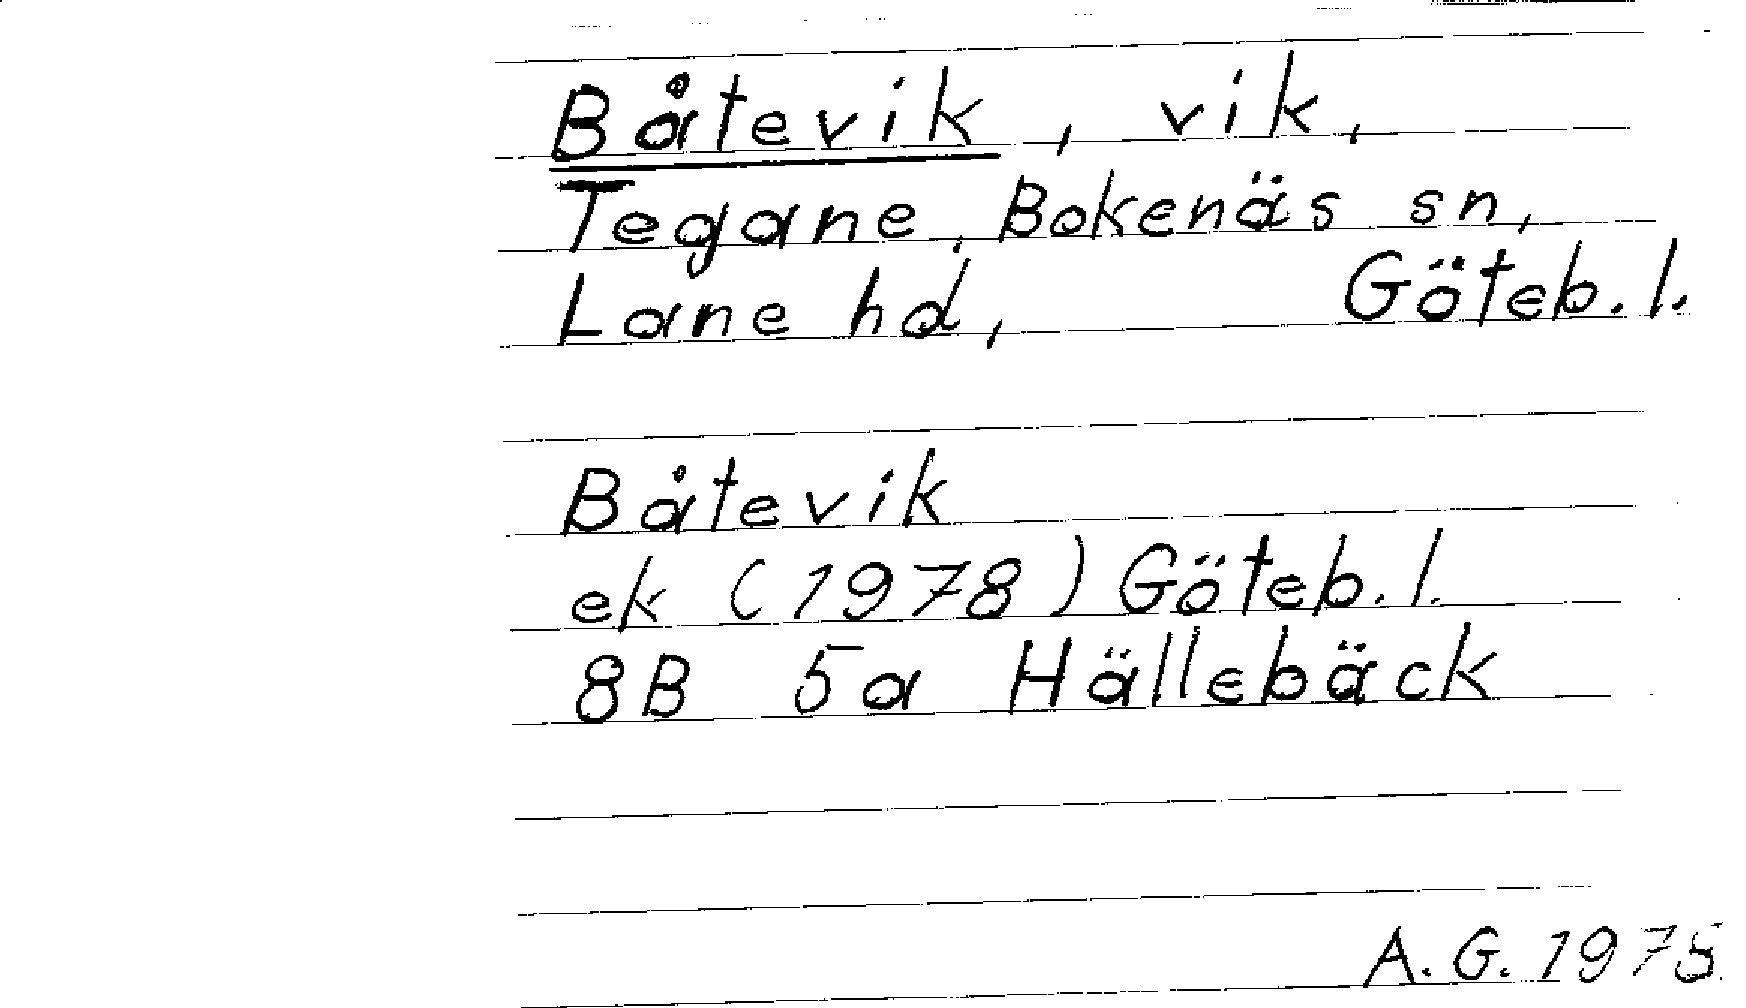 Båtevik, vik,
Tegane, Bokenäs sn,
Lane hd, Göteb. l.
Båtevik
ek (1978) Göteb. l.
8B 5a Hällebäck
A. G. 1975